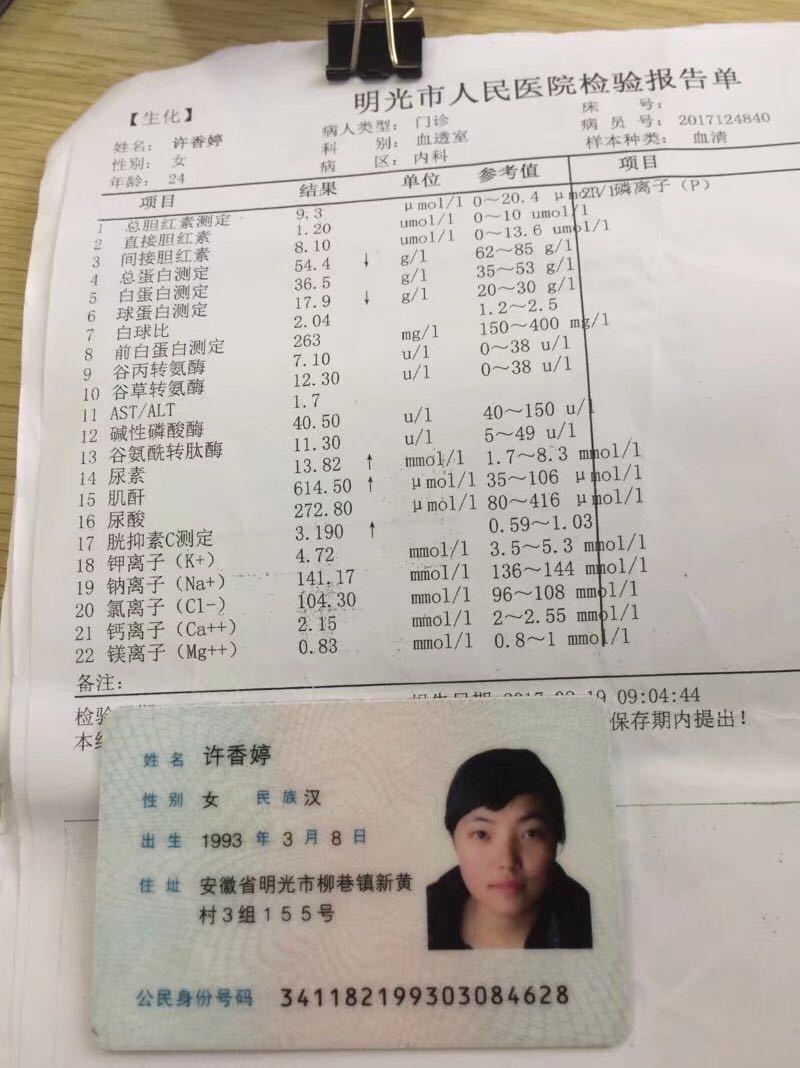 明光市人民医院检验报告单
【生化】 病人类型: 门诊 床 号:
姓名: 许香婷 科 别: 血透室 病 员 号: 2017124840
性别: 女 病 区: 内科 样本种类: 血清
年龄: 24
项目 结果 单位 参考值 项目
1 总胆红素测定 9.3 μmol/l 0~20.4 μmol/l 磷离子(P)
2 直接胆红素 1.20 umol/l 0~10 umol/l
3 间接胆红素 8.10 umol/l 0~13.6 umol/l
4 总蛋白测定 54.4 ↓ g/l 62~85 g/l
5 白蛋白测定 36.5 g/l 35~53 g/l
6 球蛋白测定 17.9 ↓ g/l 20~30 g/l
7 白球比 2.04 1.2~2.5
8 前白蛋白测定 263 mg/l 150~400 mg/l
9 谷丙转氨酶 7.10 u/l 0~38 u/l
10 谷草转氨酶 12.30 u/l 0~38 u/l
11 AST/ALT 1.7
12 碱性磷酸酶 40.50 u/l 40~150 u/l
13 谷氨酰转肽酶 11.30 u/l 5~49 u/l
14 尿素 13.82 ↑ mmol/l 1.7~8.3 mmol/l
15 肌酐 614.50 ↑ μmol/l 35~106 μmol/l
16 尿酸 272.80 μmol/l 80~416 μmol/l
17 胱抑素C测定 3.190 ↑ 0.59~1.03
18 钾离子(K+) 4.72 mmol/l 3.5~5.3 mmol/l
19 钠离子(Na+) 141.17 mmol/l 136~144 mmol/l
20 氯离子(Cl-) 104.30 mmol/l 96~108 mmol/l
21 钙离子(Ca++) 2.15 mmol/l 2~2.55 mmol/l
22 镁离子(Mg++) 0.83 mmol/l 0.8~1 mmol/l
备注:
检验 09:04:44
保存期内提出!
姓名 许香婷
性别 女 民族 汉
出生 1993 年 3 月 8 日
住址 安徽省明光市柳巷镇新黄
村3组155号
公民身份号码 341182199303084628